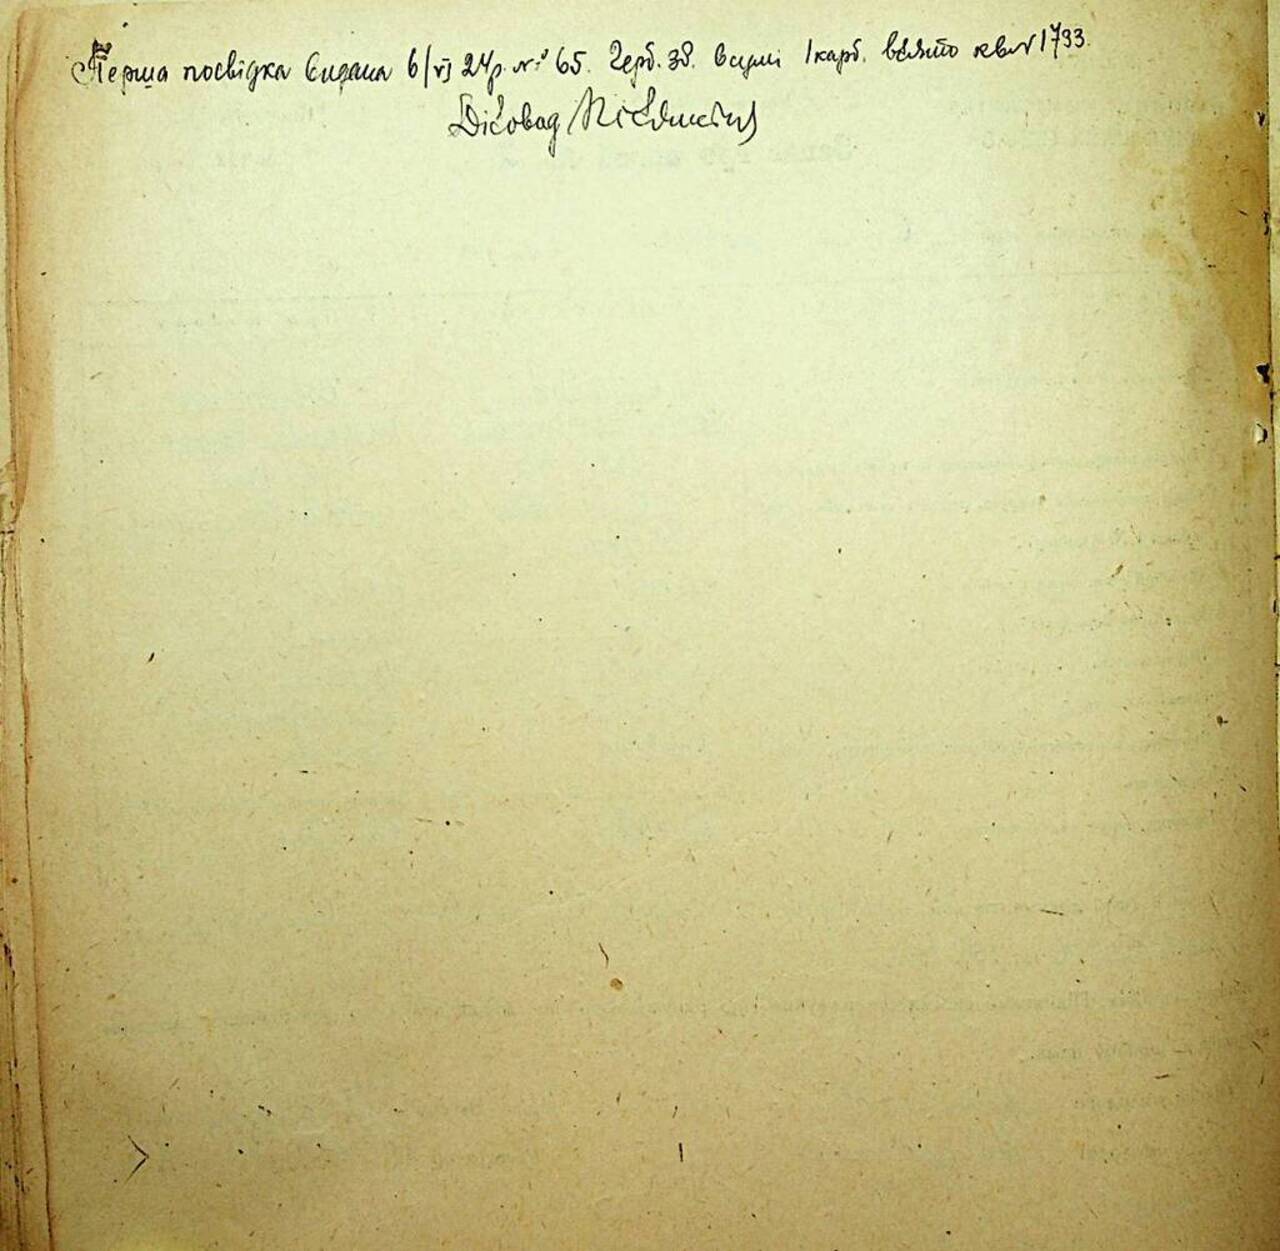 Перша посвідка видана 6/VI 24р. № 65. Герб. зб. в сумі 1 карб. взято кв. № 1733.
Діловод